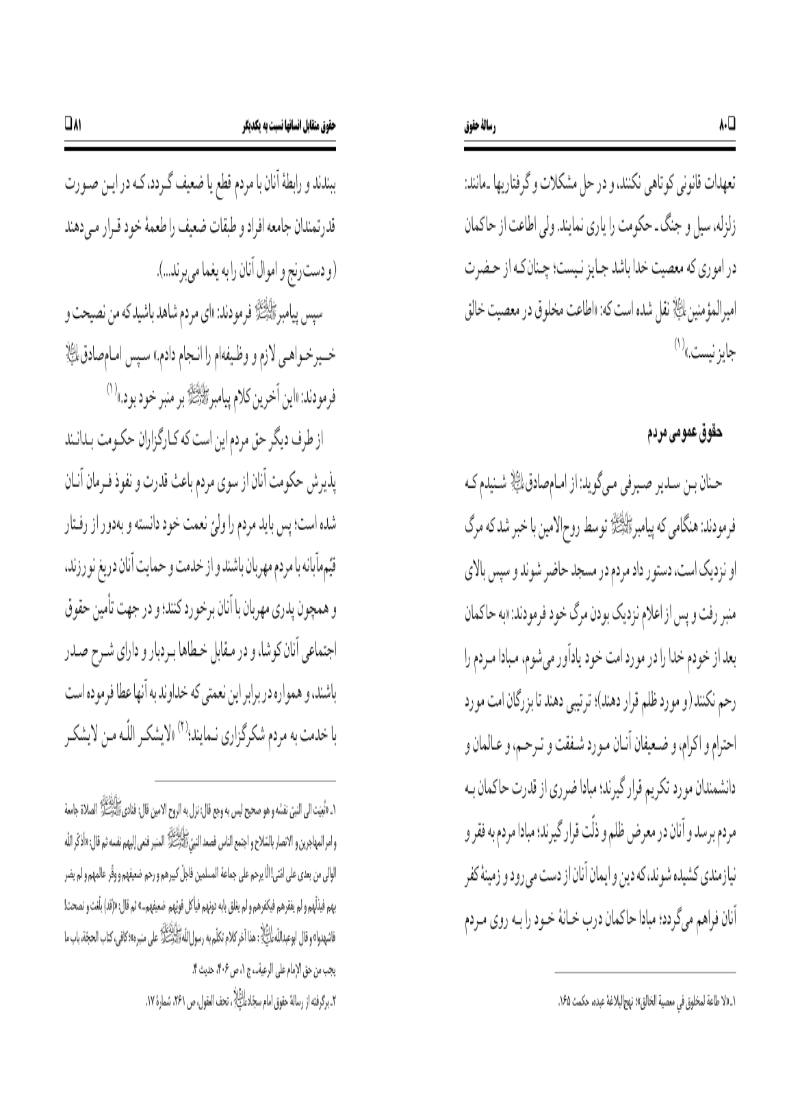 ❑ ۸۰ رسالهٔ حقوق
تعهدات قانونی کوتاهی نکنند، و در حل مشکلات و گرفتاریها ـ مانند:
زلزله، سیل و جنگ ـ حکومت را یاری نمایند. ولی اطاعت از حاکمان
در اموری که معصیت خدا باشد جایز نیست؛ چنان که از حضرت
امیرالمؤمنین علیه‌السلام نقل شده است که: «اطاعت مخلوق در معصیت خالق
جایز نیست.»(۱)
حقوق عمومی مردم
حنان بن سدیر صیرفی می‌گوید: از امام‌صادق علیه‌السلام شنیدم که
فرمودند: هنگامی که پیامبر ﷺ توسط روح‌الامین با خبر شد که مرگ
او نزدیک است، دستور داد مردم در مسجد حاضر شوند و سپس بالای
منبر رفت و پس از اعلام نزدیک بودن مرگ خود فرمودند: «به حاکمان
بعد از خودم خدا را در مورد امت خود یادآور می‌شوم، مبادا مردم را
رحم نکنند (و مورد ظلم قرار دهند)؛ ترتیبی دهند تا بزرگان امت مورد
احترام و اکرام، و ضعیفان آنان مورد شفقت و ترحم، و عالمان و
دانشمندان مورد تکریم قرار گیرند؛ مبادا ضرری از قدرت حاکمان به
مردم برسد و آنان در معرض ظلم و ذلّت قرار گیرند؛ مبادا مردم به فقر و
نیازمندی کشیده شوند، که دین و ایمان آنان از دست می‌رود و زمینهٔ کفر
آنان فراهم می‌گردد؛ مبادا حاکمان درب خانهٔ خود را به روی مردم
۱ـ «لا طاعة لمخلوق في معصية الخالق»؛ نهج‌البلاغه عبده، حکمت ۱۶۵.
حقوق متقابل انسانها نسبت به یکدیگر ۸۱ ❑
ببندند و رابطهٔ آنان با مردم قطع یا ضعیف گردد، که در این صورت
قدرتمندان جامعه افراد و طبقات ضعیف را طعمهٔ خود قرار می‌دهند
(و دست‌رنج و اموال آنان را به یغما می‌برند...).
سپس پیامبر ﷺ فرمودند: «ای مردم شاهد باشید که من نصیحت و
خیرخواهی لازم و وظیفه‌ام را انجام دادم.» سپس امام‌صادق علیه‌السلام
فرمودند: «این آخرین کلام پیامبر ﷺ بر منبر خود بود.»(۱)
از طرف دیگر حق مردم این است که کارگزاران حکومت بدانند
پذیرش حکومت آنان از سوی مردم باعث قدرت و نفوذ فرمان آنان
شده است؛ پس باید مردم را ولیّ نعمت خود دانسته و به‌دور از رفتار
قیّم‌مآبانه با مردم مهربان باشند و از خدمت و حمایت آنان دریغ نورزند،
و همچون پدری مهربان با آنان برخورد کنند؛ و در جهت تأمین حقوق
اجتماعی آنان کوشا، و در مقابل خطاها بردبار و دارای شرح صدر
باشند، و همواره در برابر این نعمتی که خداوند به آنها عطا فرموده است
با خدمت به مردم شکرگزاری نمایند؛(۲) «لایشکر اللّه من لایشکر
۱ـ «نُعِيَت الى النبيّ نفسُه و هو صحيح ليس به وجع قال: نزل به الروح الامين قال: فنادى ﷺ الصلاة جامعة
و امر المهاجرين و الانصار بالسّلاح و اجتمع الناس فصعد النبيّ ﷺ المنبر فنعى إليهم نفسه ثم قال: «أذكّر الله
الوالى من بعدى على امّتى الّا يرحم على جماعة المسلمين فاجلّ كبيرهم و رحم ضعيفهم و وقّر عالمهم و لم يضر
بهم فيذلّهم و لم يفقرهم فيكفرهم و لم يغلق بابه دونهم فيأكل قويّهم ضعيفهم...» ثم قال: «(قد) بلّغت و نصحت!
فاشهدوا» و قال ابوعبدالله علیه‌السلام: هذا آخر كلام تكلّم به رسول‌اللّه ﷺ على منبره»؛ کافی، کتاب الحجّة، باب ما
یجب من حق الإمام علی الرعیة...، ج ۱، ص ۴۰۶، حدیث ۴.
۲ـ برگرفته از رسالهٔ حقوق امام سجّاد علیه‌السلام، تحف العقول، ص ۲۶۱، شمارهٔ ۱۷.